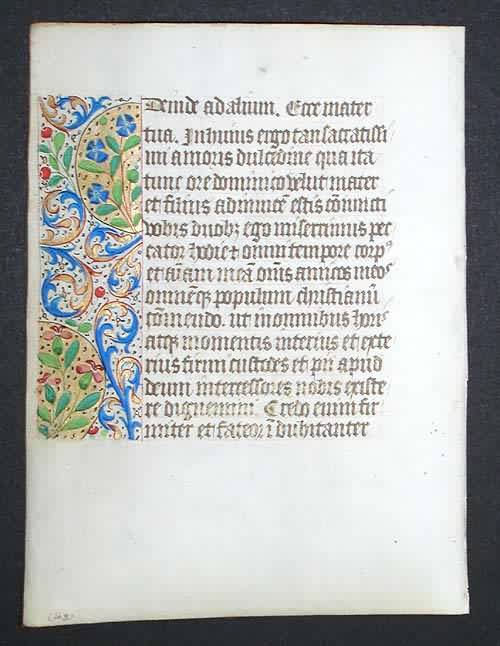 Deinde ad alium. Ecce mater
tua. In huius ergo tan sacratissi
mi amoris dulcedine qua ita
tunc ore dominico velut mater
et filius adinuicē estis cōiuncti
vobis duobꝫ ego miserrimus pec
cator hodie ⁊ omni tempore corpꝰ
et aīam meā om̄s amicos meos
omnēqꝫ populum christianū
cōmendo. ut in omnibus horis
atqꝫ momentis interius et exte
rius firmi custodes et pii apud
deum intercessores nobis existe
re dignemini. Credo enim fir
miter et fateor īdubitanter